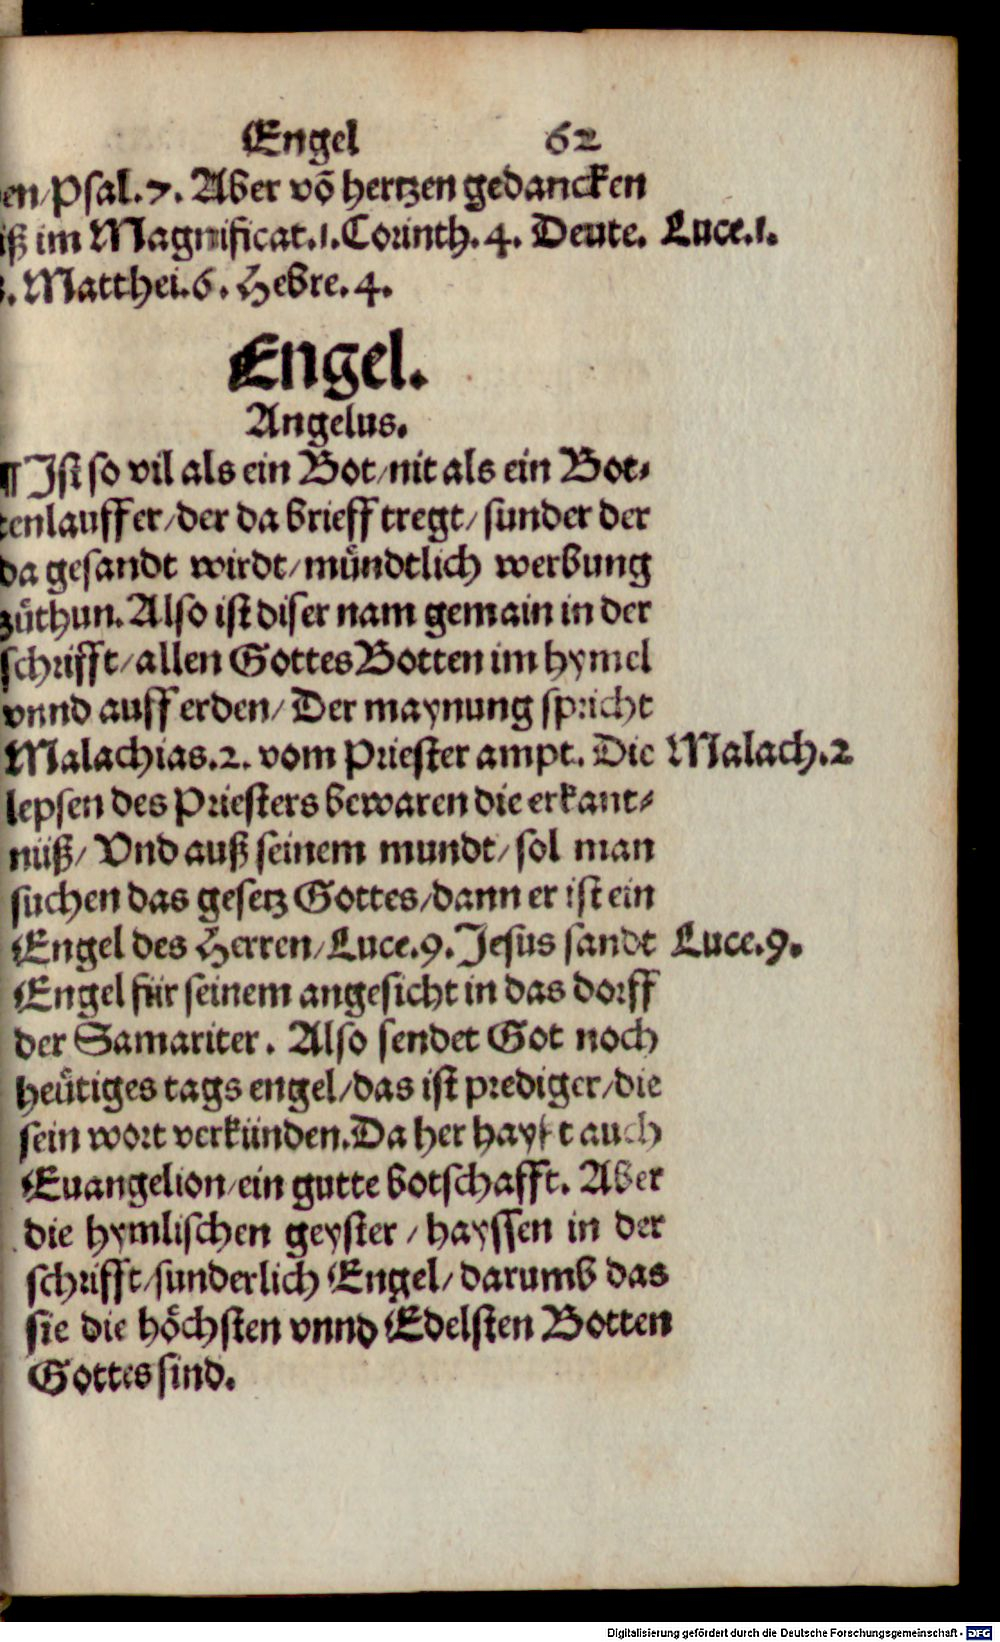 Engel 62
en/ Psal. 7. Aber võ hertzen gedancken
iß im Magnificat. 1. Corinth. 4. Deute. Luce. 1.
. Matthei. 6. Hebre. 4.
Engel.
Angelus.
¶ Ist so vil als ein Bot/ nit als ein Bot⸗
tenlauffer/ der da brieff tregt/ sunder der
da gesandt wirdt/ mündtlich werbung
zůthun. Also ist diser nam gemain in der
schrifft/ allen Gottes Botten im hymel
vnnd auff erden/ Der maynung spricht
Malachias. 2. vom Priester ampt. Die Malach. 2
lepsen des Priesters bewaren die erkant⸗
nüß/ Vnd auß seinem mundt/ sol man
suchen das gesetz Gottes/ dann er ist ein
Engel des Herren/ Luce. 9. Jesus sandt Luce. 9.
Engel für seinem angesicht in das dorff
der Samariter. Also sendet Got noch
heütiges tags engel/ das ist prediger/ die
sein wort verkünden. Da her hayst auch
Euangelion/ ein gutte botschafft. Aber
die hymlischen geyster/ hayssen in der
schrifft/ sunderlich Engel/ darumb das
sie die höchsten vnnd Edelsten Botten
Gottes sind.
Digitalisierung gefördert durch die Deutsche Forschungsgemeinschaft - DFG